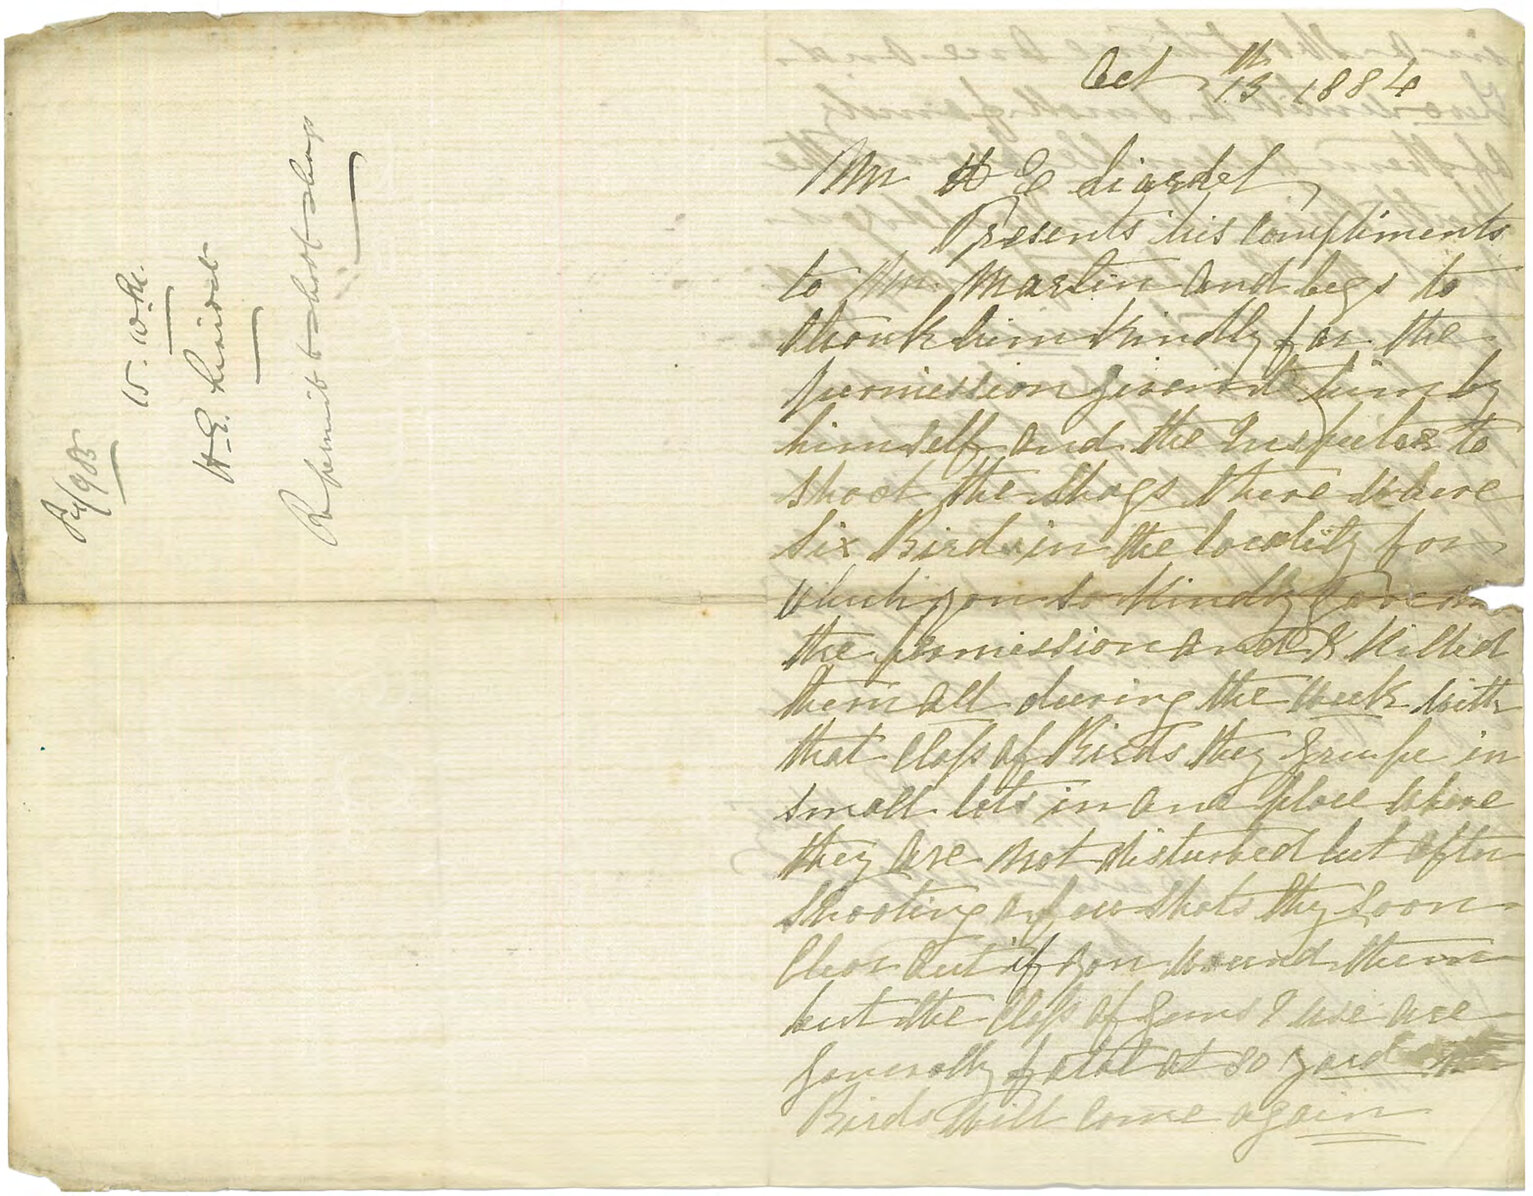 Oct 13th 1884
Mr H E Liardet
Presents his compliments
to Mr. Martin and begs to
thank him kindly for the
permission given to him by
himself and the Inspector to
shoot the Shags there where
six Birds in the locality for
which you so kindly gave me
the permission and I killed
them all during the week with
that Class of Birds they groupe in
small lots in one place where
they are not disturbed but after
shooting a few shots they soon
Clear out if you wound them
but the Class of Guns I use are
generally fatal at 80 yard
Birds will come again
15. W. M.
H. E. Liardet
Re permit to shoot shags